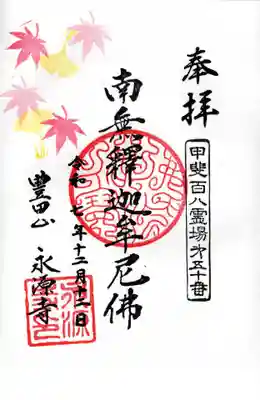 奉拝
甲斐百八霊場才五十番
南無釋迦牟尼佛
令和七年十二月十二日
豊田山 永源寺